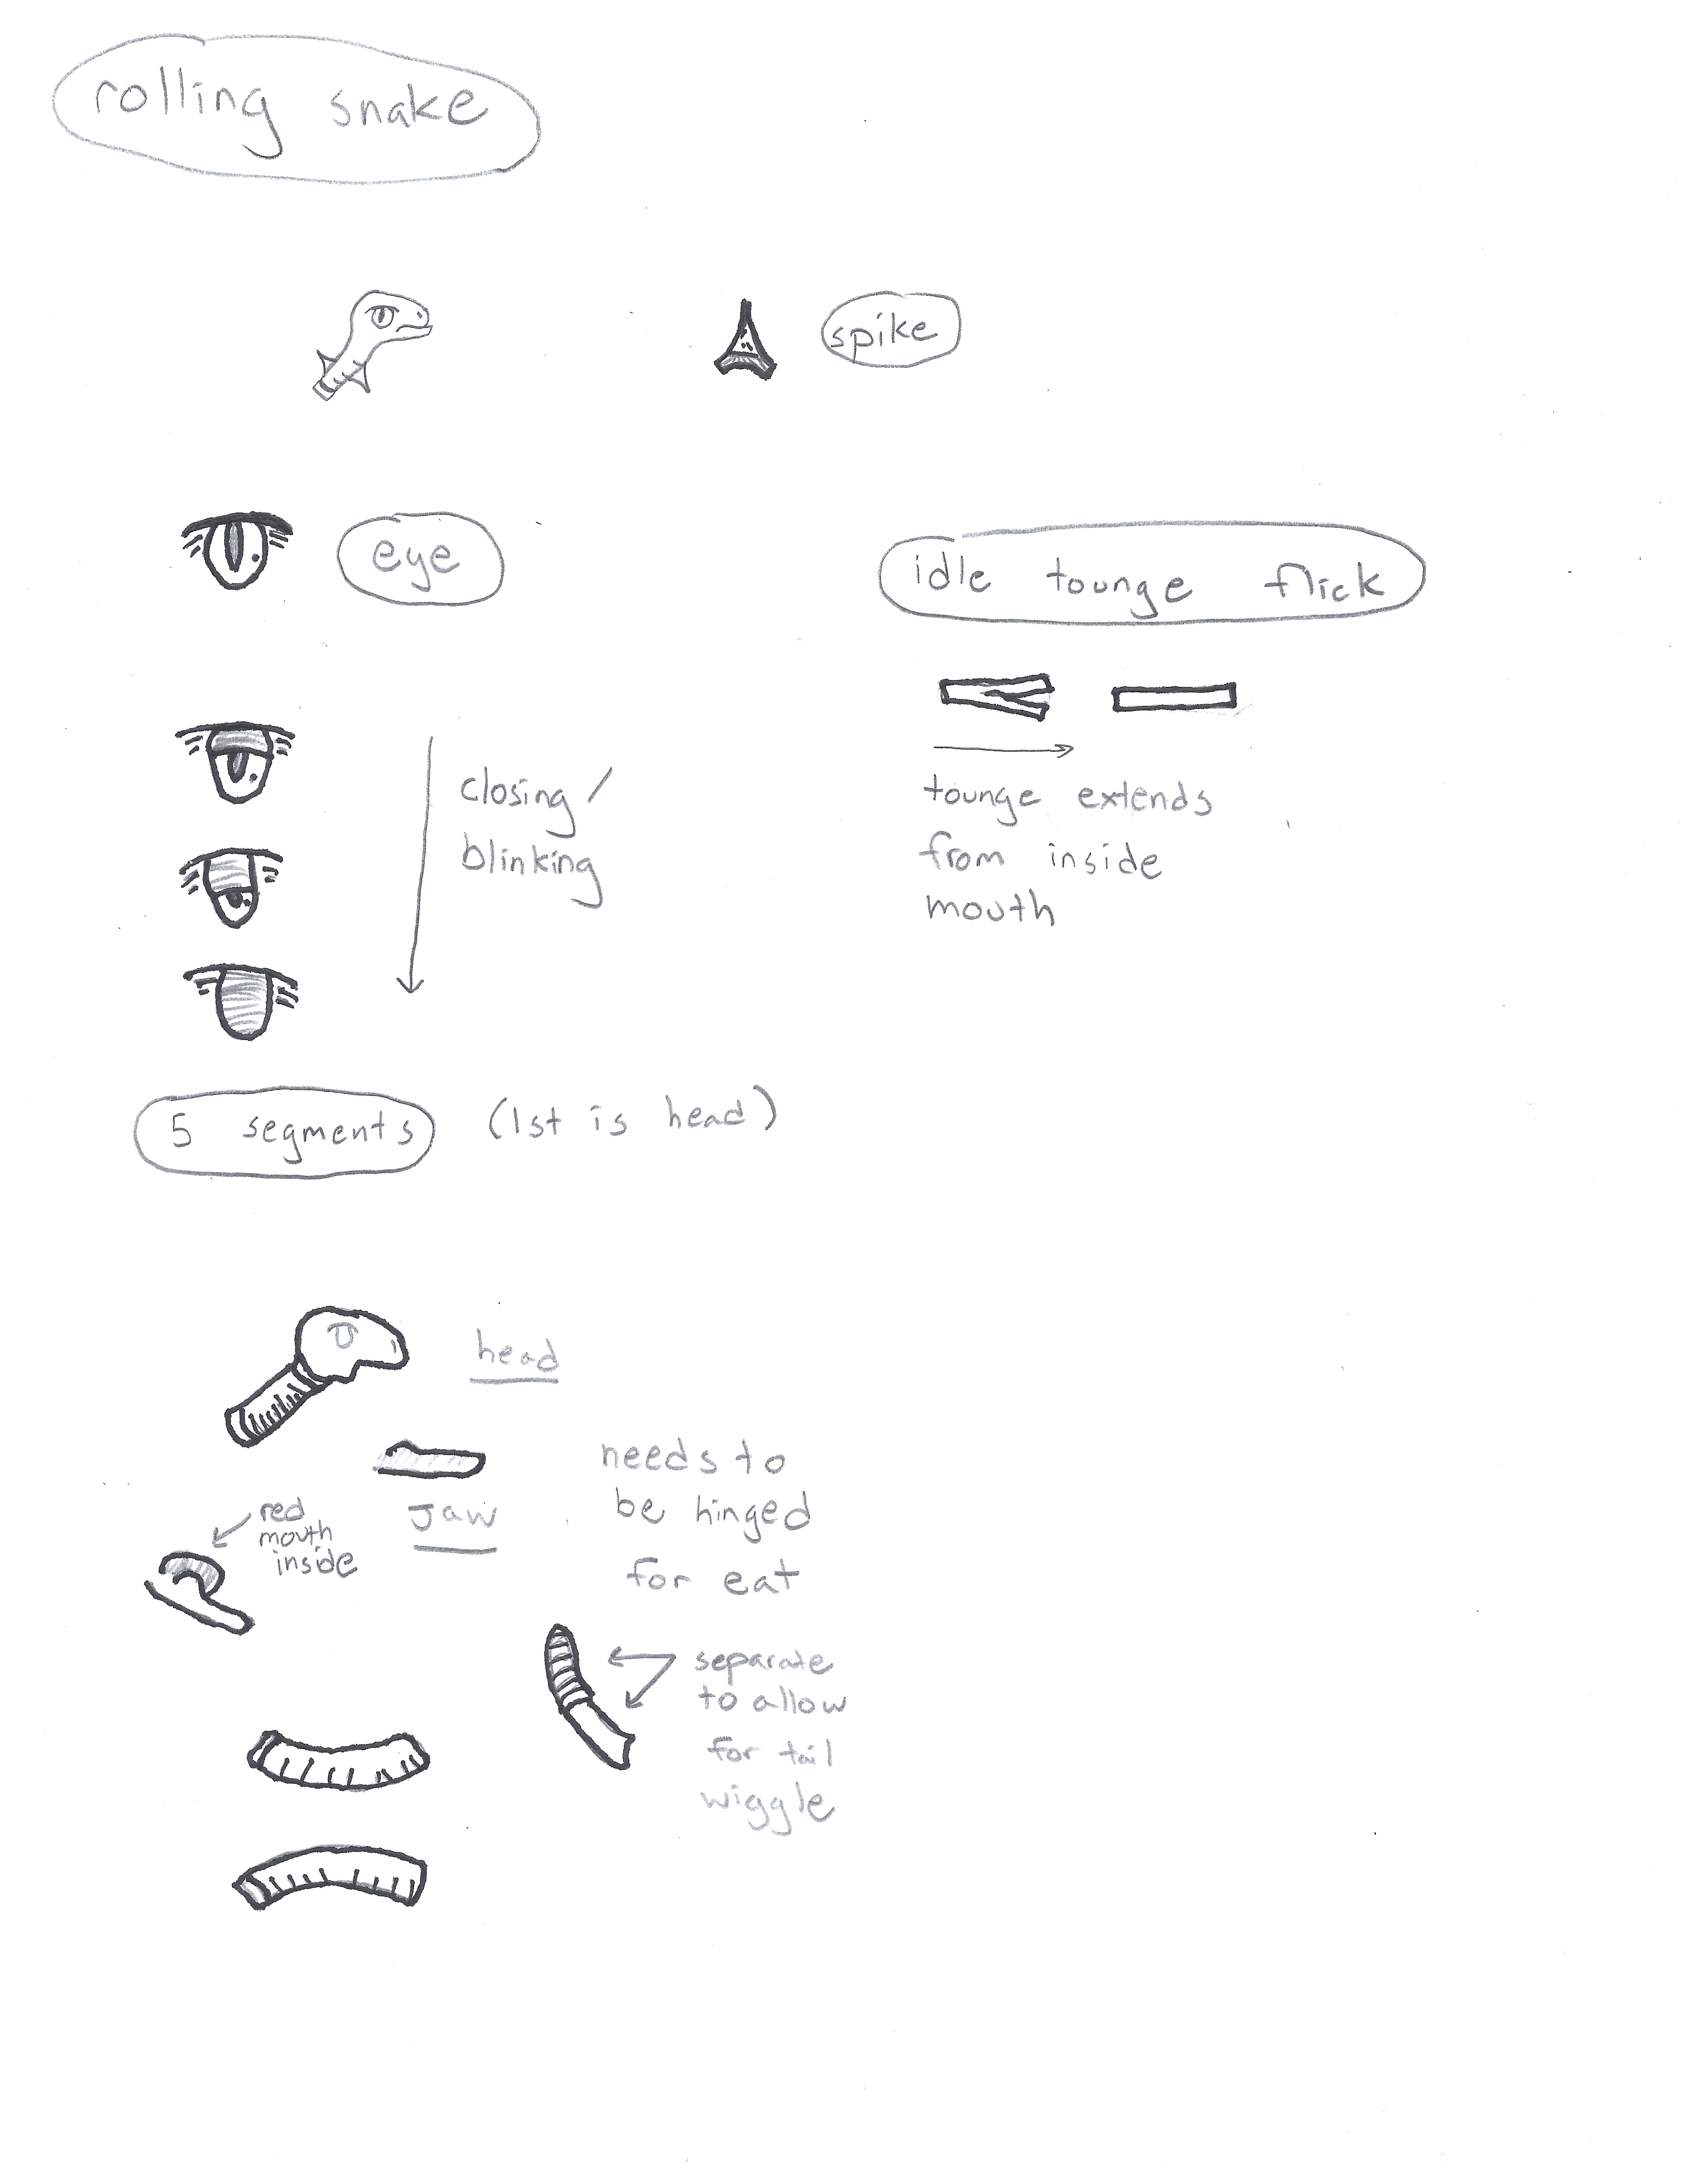 rolling snake
spike
eye
idle tounge flick
closing/
blinking
tounge extends
from inside
mouth
5 segments (1st is head)
head
needs to
be hinged
for eat
Jaw
red
mouth
inside
separate
to allow
for tail
wiggle